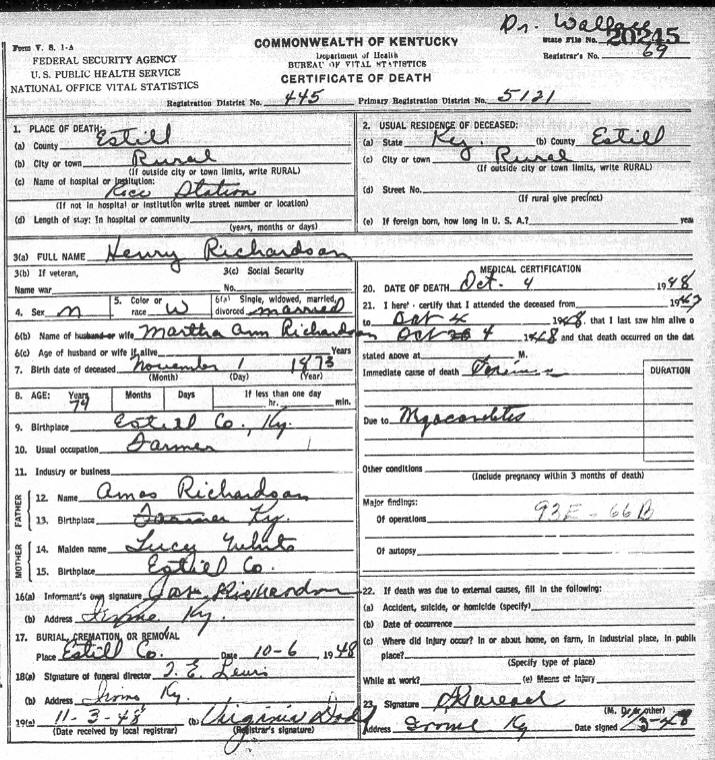 Dr. Wallace
Form V. S. 1-A
FEDERAL SECURITY AGENCY
U. S. PUBLIC HEALTH SERVICE
NATIONAL OFFICE VITAL STATISTICS
COMMONWEALTH OF KENTUCKY
Department of Health
BUREAU OF VITAL STATISTICS
CERTIFICATE OF DEATH
State File No. 20245
Registrar's No. 69
Registration District No. 445 Primary Registration District No. 5121
1. PLACE OF DEATH:
(a) County Estill
(b) City or town Rural
(If outside city or town limits, write RURAL)
(c) Name of hospital or institution:
Rice Station
(If not in hospital or institution write street number or location)
(d) Length of stay: In hospital or community
(years, months or days)
2. USUAL RESIDENCE OF DECEASED:
(a) State Ky. (b) County Estill
(c) City or town Rural
(If outside city or town limits, write RURAL)
(d) Street No.
(If rural give precinct)
(e) If foreign born, how long in U. S. A.? yea
3(a) FULL NAME Henry Richardson
3(b) If veteran, 3(c) Social Security
Name war No.
4. Sex M 5. Color or race W 6(a) Single, widowed, married, divorced married
6(b) Name of husband or wife Martha Ann Richardson
6(c) Age of husband or wife if alive Years
7. Birth date of deceased November 1 1873
(Month) (Day) (Year)
8. AGE: Years Months Days If less than one day
74 hr. min.
9. Birthplace Estill Co., Ky.
10. Usual occupation Farmer
11. Industry or business
FATHER
12. Name Amos Richardson
13. Birthplace Farmer Ky.
MOTHER
14. Maiden name Lucy White
15. Birthplace Estill Co.
16(a) Informant's own signature Richardson
(b) Address Irvine Ky.
17. BURIAL, CREMATION, OR REMOVAL
Place Estill Co. Date 10-6, 1948
18(a) Signature of funeral director T. E. Lewis
(b) Address Irvine Ky.
19(a) 11-3-48 (b) Virginia
(Date received by local registrar) (Registrar's signature)
MEDICAL CERTIFICATION
20. DATE OF DEATH Oct. 4 1948
21. I hereby certify that I attended the deceased from 1947
to Oct 4 1948, that I last saw him alive o
Oct 4 1948 and that death occurred on the dat
stated above at M.
Immediate cause of death
DURATION
Due to Myocarditis
Other conditions
(Include pregnancy within 3 months of death)
Major findings:
Of operations 93E - 66B
Of autopsy
22. If death was due to external causes, fill in the following:
(a) Accident, suicide, or homicide (specify)
(b) Date of occurrence
(c) Where did injury occur? In or about home, on farm, in industrial place, in public
place?
(Specify type of place)
While at work? (e) Means of Injury
23. Signature
(M. D. or other)
Address Irvine Ky Date signed